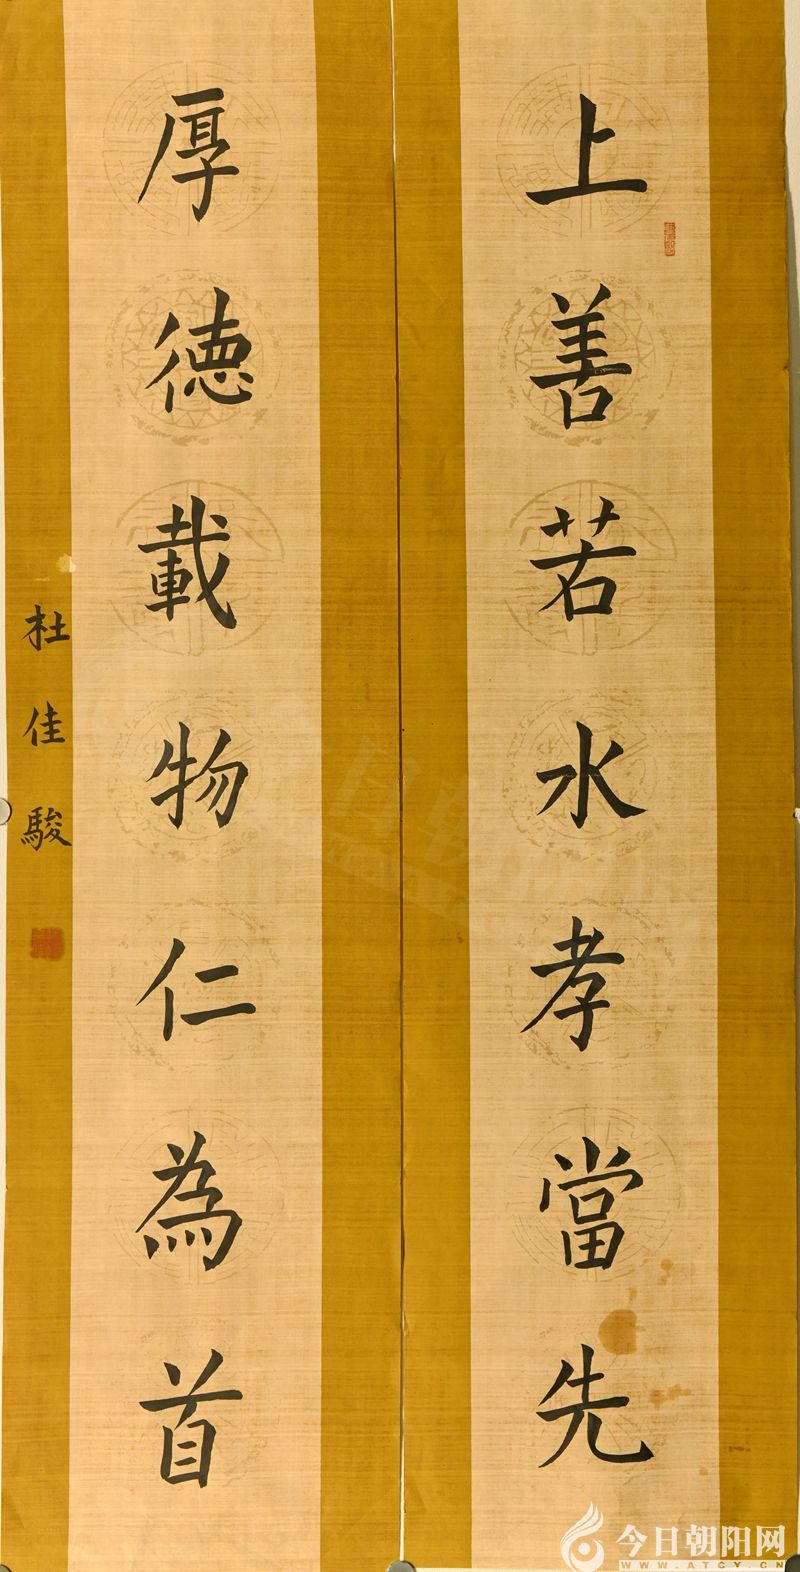 上善若水孝當先
厚德載物仁為首
杜佳駿
今日朝阳网
WWW.ATCY.CN